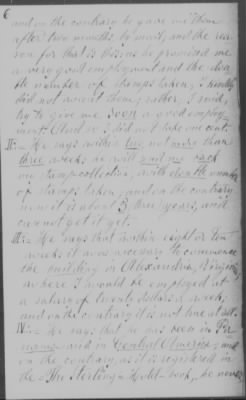 6
and on the contrary he gave me them
after two months by mail, and the rea-
son for that is this: as he promised me
a very good employment and the dou-
ble number of stamps taken, I
did not accept them; rather, I said,
try to give me soon a good employ-
ment. And so I did not take one cent.
II: - He says within two, not more than
three weeks he will my
my stamp collection, with double number
of stamps taken; and on the contrary
now it is about 3, three, years, and will
can not get it yet.
III: - He says that within eight or ten
weeks it was necessary to commence
the building in Alexandria, Virginia
where I would be employed at
a salary of twenty dollars a week;
and on the contrary it is not true at all.
IV: - He says that he has been in
and in Central America; and
on the contrary, as it is registered in
the "The Sterling - Hotel - book, he never